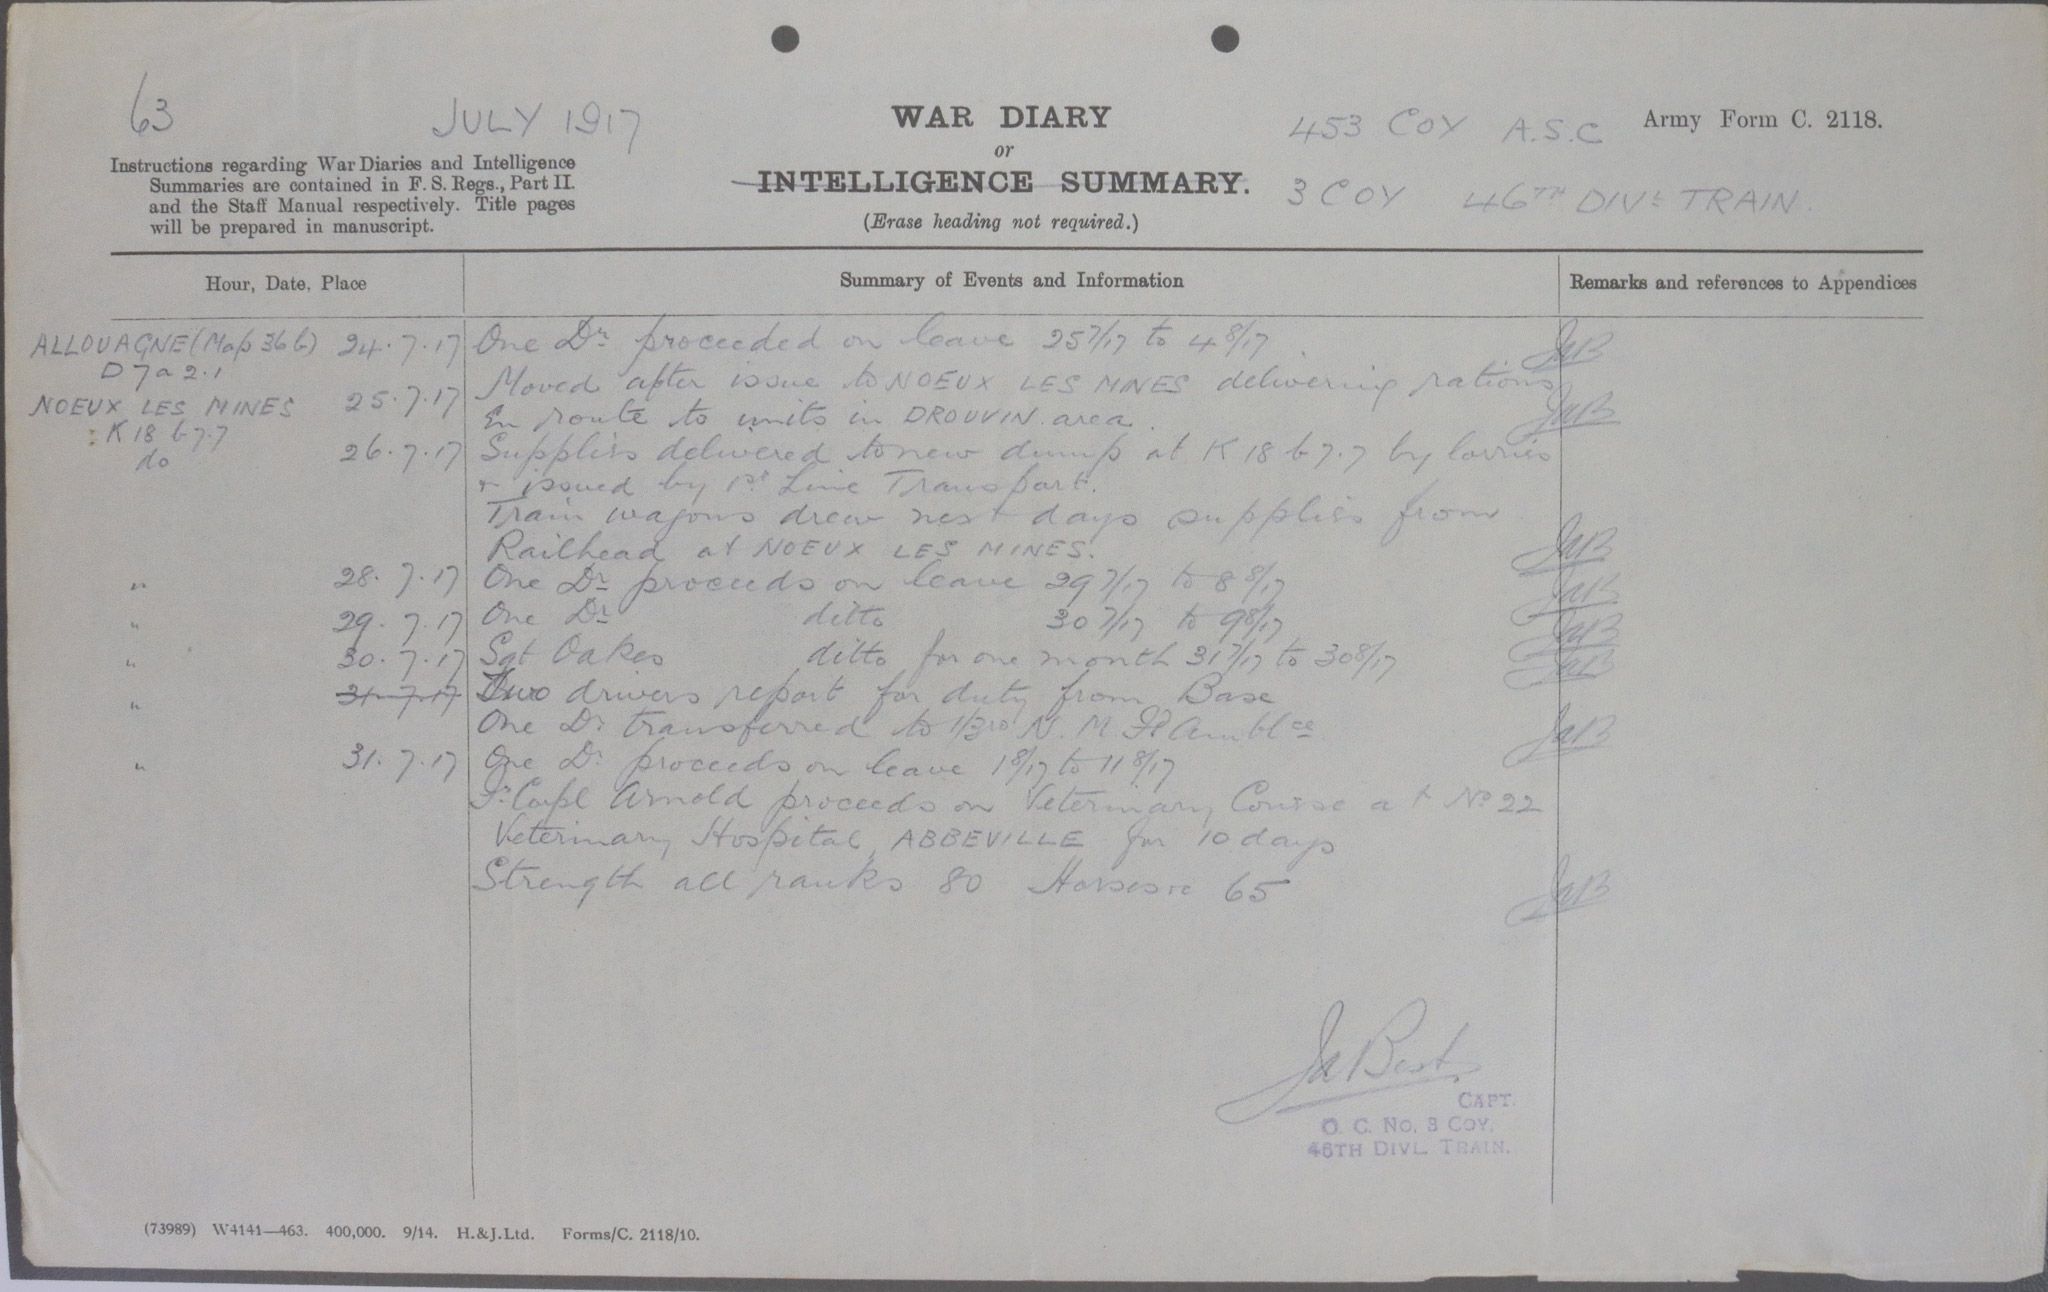 63
JULY 1917
WAR DIARY
or
INTELLIGENCE SUMMARY.
(Erase heading not required.)
453 COY A.S.C
3 COY 46TH DIVL TRAIN.
Army Form C. 2118.
Instructions regarding War Diaries and Intelligence
Summaries are contained in F. S. Regs., Part II.
and the Staff Manual respectively. Title pages
will be prepared in manuscript.
Hour, Date, Place
Summary of Events and Information
Remarks and references to Appendices
ALLOUAGNE (Map 36 b) 24.7.17 One Dr proceeded on leave 25 7/17 to 4 8/17 JaB
D 7 a 2.1
Moved after issue to NOEUX LES MINES delivering rations
NOEUX LES MINES 25.7.17 En route to units in DROUVIN area. JaB
: K 18 b 7.7
do 26.7.17 Supplies delivered to new dump at K 18 b 7.7 by lorries
+ issued by 1st Line Transport.
Train wagons drew next days supplies from
Railhead at NOEUX LES MINES. JaB
" 28.7.17 One Dr proceeds on leave 29 7/17 to 8 8/17 JaB
" 29.7.17 One Dr ditto 30 7/17 to 9 8/17 JaB
" 30.7.17 Sgt Oakes ditto for one month 31 7/17 to 30 8/17 JaB
" 31.7.17 Two drivers report for duty from Base
One Dr transferred to 1/3rd N. M. Fd Amblce JaB
" 31.7.17 One Dr proceeds on leave 1 8/17 to 11 8/17
Corpl Arnold proceeds on Veterinary Course at No 22
Veterinary Hospital, ABBEVILLE for 10 days
Strength all ranks 80 Horses 65 JaB
Ja Best
CAPT.
O. C. No. 3 COY.
46TH DIVL. TRAIN.
(73989) W4141—463. 400,000. 9/14. H.&J.Ltd. Forms/C. 2118/10.